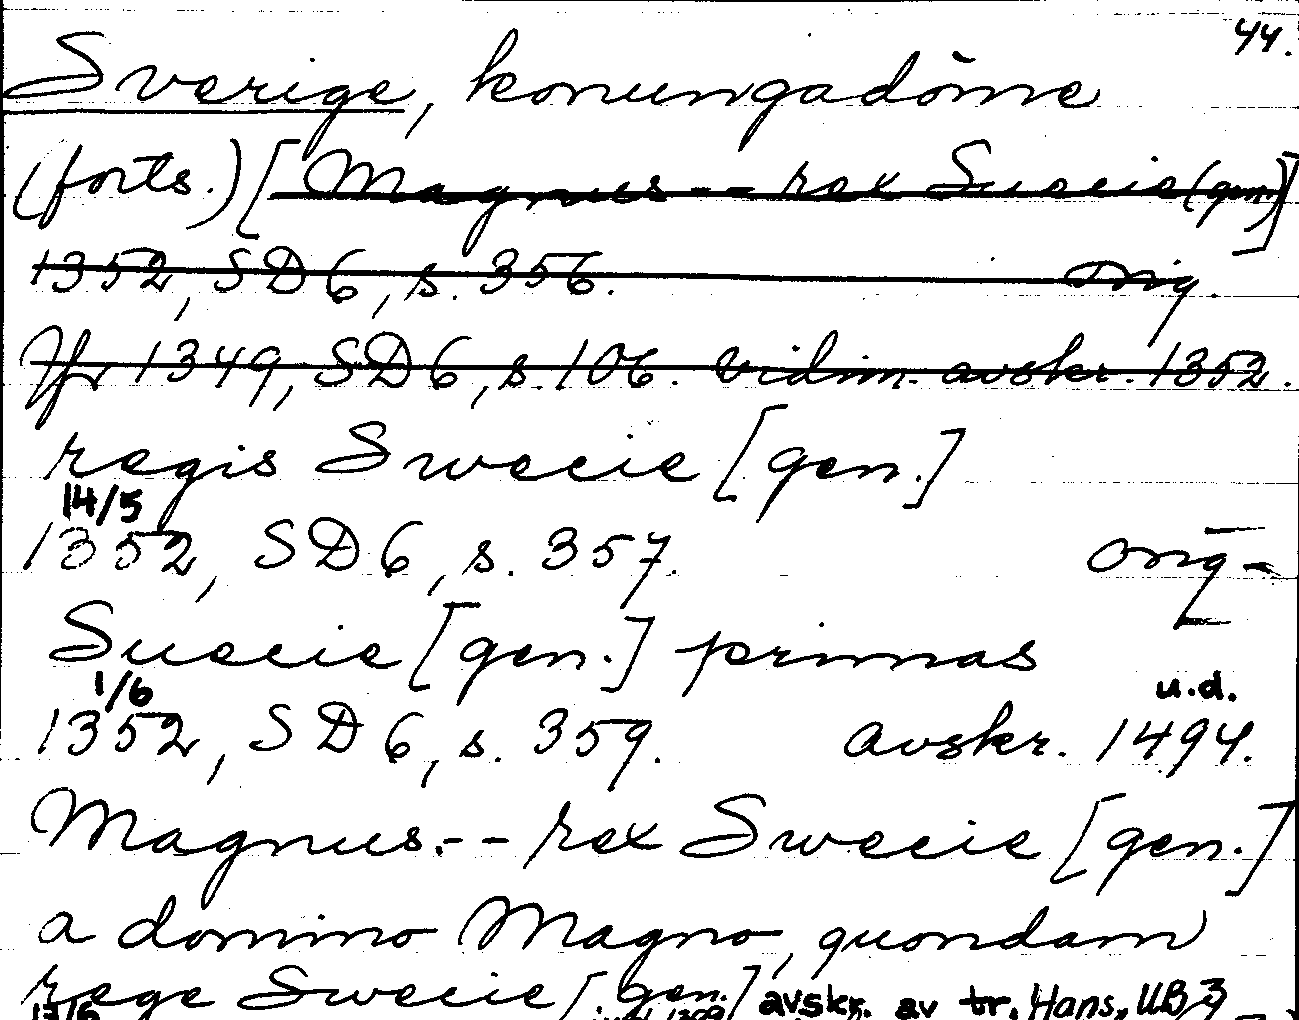 44.
Sverige, konungadöme
(forts.) [Magnus -- rex Suecie (gen.)]
1352, SD 6, s. 356. orig.
Jfr 1349, SD 6, s. 106. vidim. avskr. 1352.
regis Swecie [gen.]
14/5
1352, SD 6, s. 357. orig
Suecie [gen.] primas
1/6 u.d.
1352, SD 6, s. 359. avskr. 1494.
Magnus.-- rex Swecie [gen.]
a domino Magno, quondam
rege Swecie [gen.] avskr. av tr. Hans, UB 3
17/6